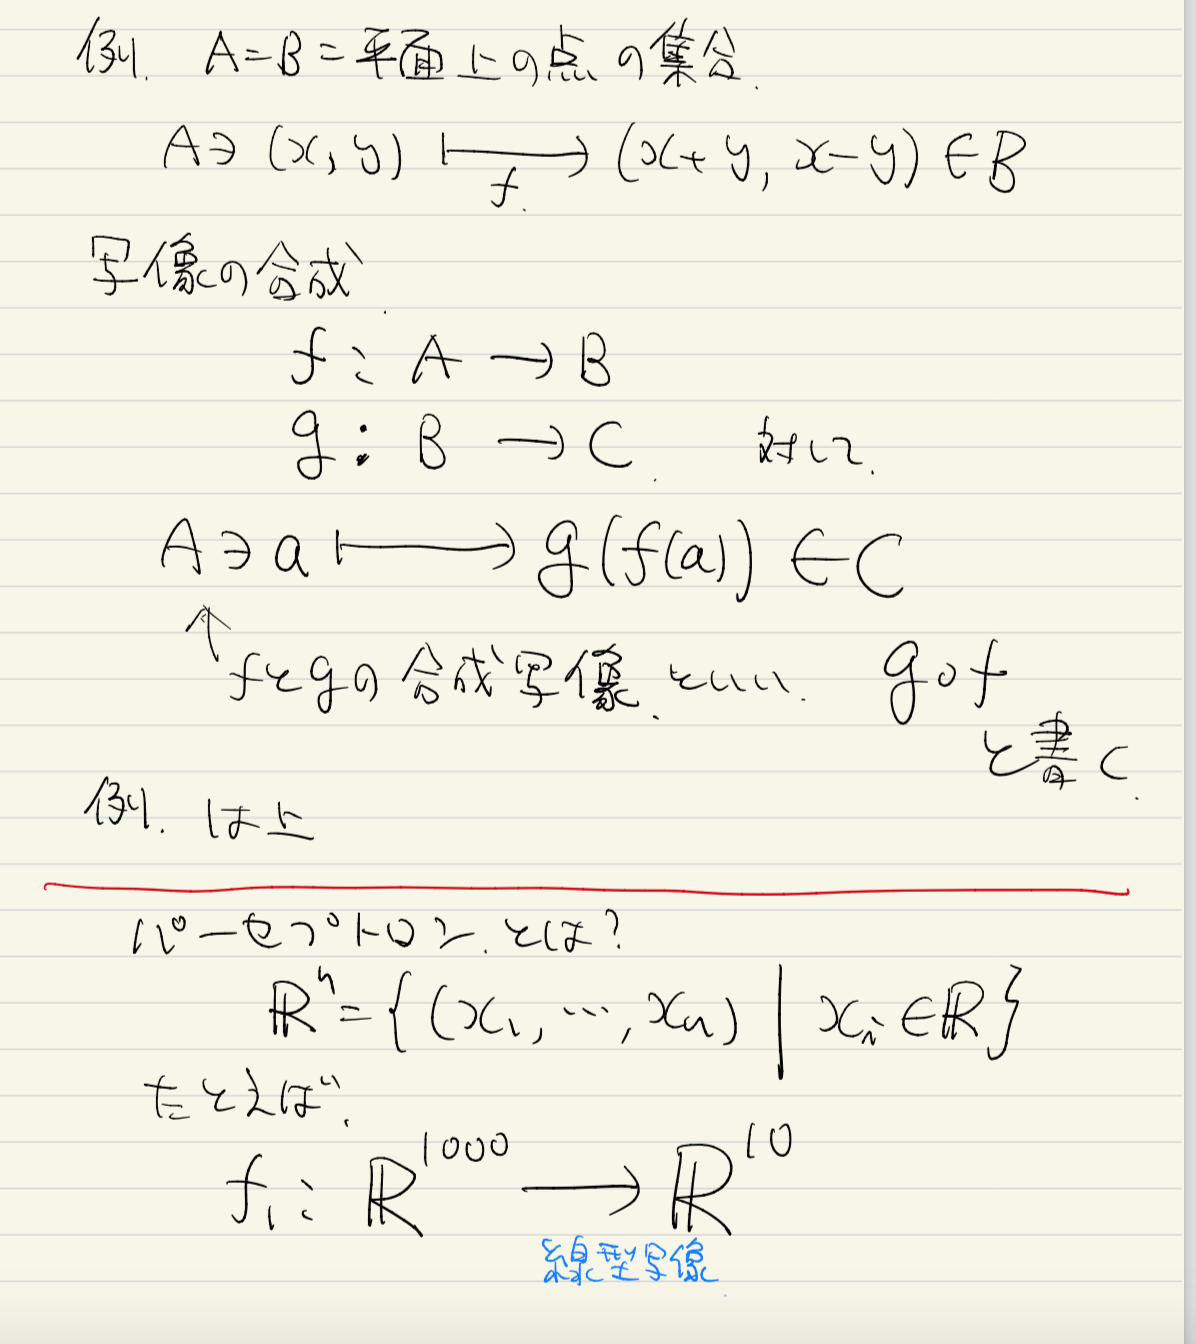 例. A=B=平面上の点の集合.
A∋(x, y) ⟼ (x+y, x-y)∈B
f.
写像の合成.
f: A→B
g: B→C. 対して.
A∋a⟼g(f(a))∈C
↑fとgの合成写像.といい. g∘f
と書く.
例. は上
パーセプトロン.とは?
ℝⁿ={(x₁, …, xₙ) | xᵢ∈ℝ}
たとえば.
f₁: ℝ¹⁰⁰⁰ → ℝ¹⁰
線型写像.